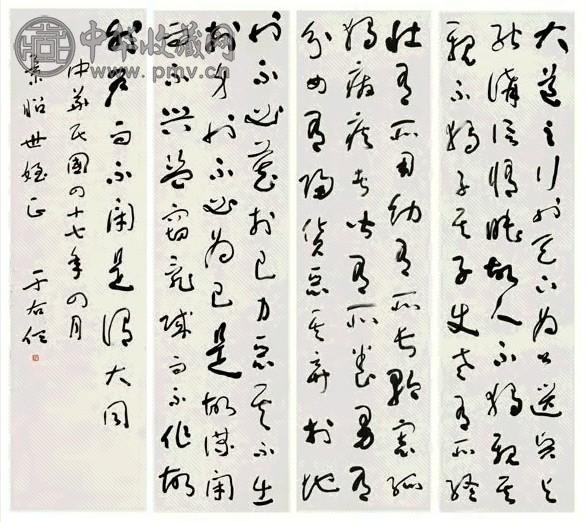 大道之行也天下為公選賢與
能講信修睦故人不獨親其
親不獨子其子使老有所終
壯有所用幼有所長鰥寡孤
獨廢疾者皆有所養男有
分女有歸貨惡其棄於地
也不必藏於己力惡其不出
於身也不必為己是故謀閉
而不興盜竊亂賊而不作故
外戶而不閉是謂大同
中華民國四十七年四月
昭世姪正 于右任
中华收藏网
www.pmv.cn